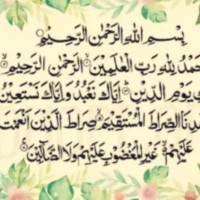 بِسْمِ اللهِ الرَّحْمٰنِ الرَّحِيْمِ
حَمْدُ لِلّٰهِ رَبِّ الْعٰلَمِيْنَ الرَّحْمٰنِ الرَّحِيْمِ
يَوْمِ الدِّيْنِ اِيَّاكَ نَعْبُدُ وَاِيَّاكَ نَسْتَعِيْنُ
دِنَا الصِّرَاطَ الْمُسْتَقِيْمَ صِرَاطَ الَّذِيْنَ اَنْعَمْتَ
عَلَيْهِمْ غَيْرِ الْمَغْضُوْبِ عَلَيْهِمْ وَلَا الضَّآلِّيْنَ